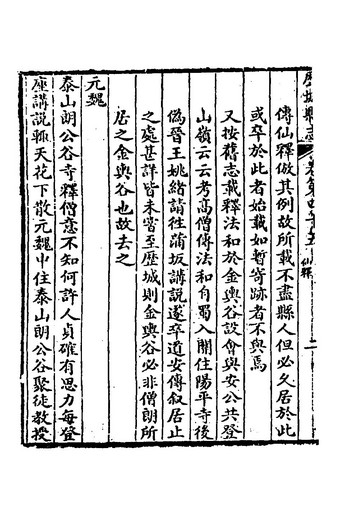 歷城縣志
卷第四十五
仙釋
二
傳仙釋倣其例故所載不盡縣人但必久居於此
或卒於此者始載如暫寄跡者不與焉
又按舊志載釋法和於金輿谷設會與安公共登
山嶺云云考高僧傳法和自蜀入關住陽平寺後
僞晉王姚緒請往蒲坂講說遂卒道安傳叙居止
之處甚詳皆未嘗至歷城則金輿谷必非僧朗所
居之金輿谷也故去之
元魏
泰山朗公谷寺釋僧意不知何許人貞確有思力每登
座講說輒天花下散元魏中住泰山朗公谷聚徒教授